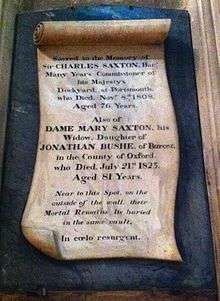 Sacred to the Memory of
Sir CHARLES SAXTON, Bar.t
Many Years Commissioner of
his Majestys
Dockyard, at Portsmouth,
who Died, Nov.r 8th, 1808.
Aged 76 Years.
Also of
DAME MARY SAXTON, his
Widow, Daughter of
JONATHAN BUSHE, of Burcot,
in the County of Oxford
who Died, July 21st 1825.
Aged 81 Years.
Near to this Spot, on the
outside of the wall, their
Mortal Remains, lie buried
in the same vault.
In cœlo resurgent.